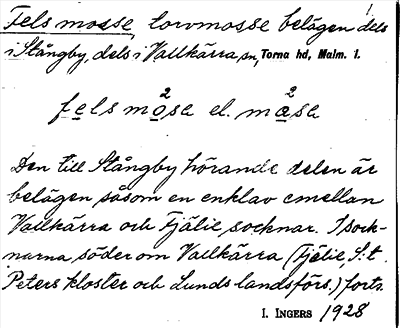 Fels mosse, torvmosse belägen dels
i Stångby, dels i Vallkärra sn, Torna hd, Malm. l.
fels mo²sa el. mæ²sa
Den till Stångby hörande delen är
belägen såsom en enklav emellan
Vallkärra och Fjälie socknar. I sock-
narna söder om Vallkärra (Fjälie, S:t
Peters Kloster och Lunds landsförs.) forts.
I. INGERS 1928